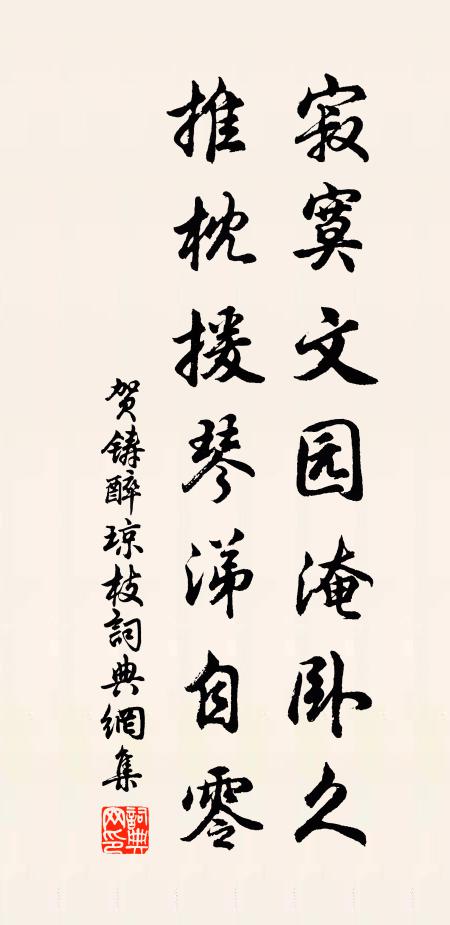 寂寞文园淹卧久
推枕援琴涕自零
贺铸醉琼枝詞典網集
詞典網印